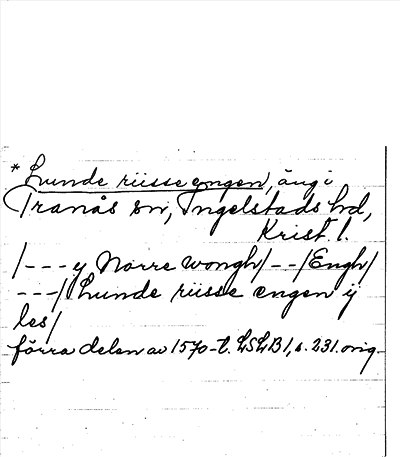 * Lunde riisse engen, äng i
Tranås sn, Ingelstads hd,
Krist. l.
/--- y Norre wongh/--/Engh/
---/ Lunde riisse engen ij
les/
förra delen av 1570-t. LSLB 1, s. 231. orig.